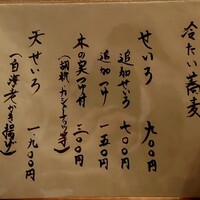 冷たい蕎麦
せいろ 九〇〇円
追加せいろ 七〇〇円
追加つゆ 一五〇円
木の実つゆ付 三〇〇円
(胡桃、カシューナッツ等)
天せいろ 一、九〇〇円
(白海老かき揚げ)